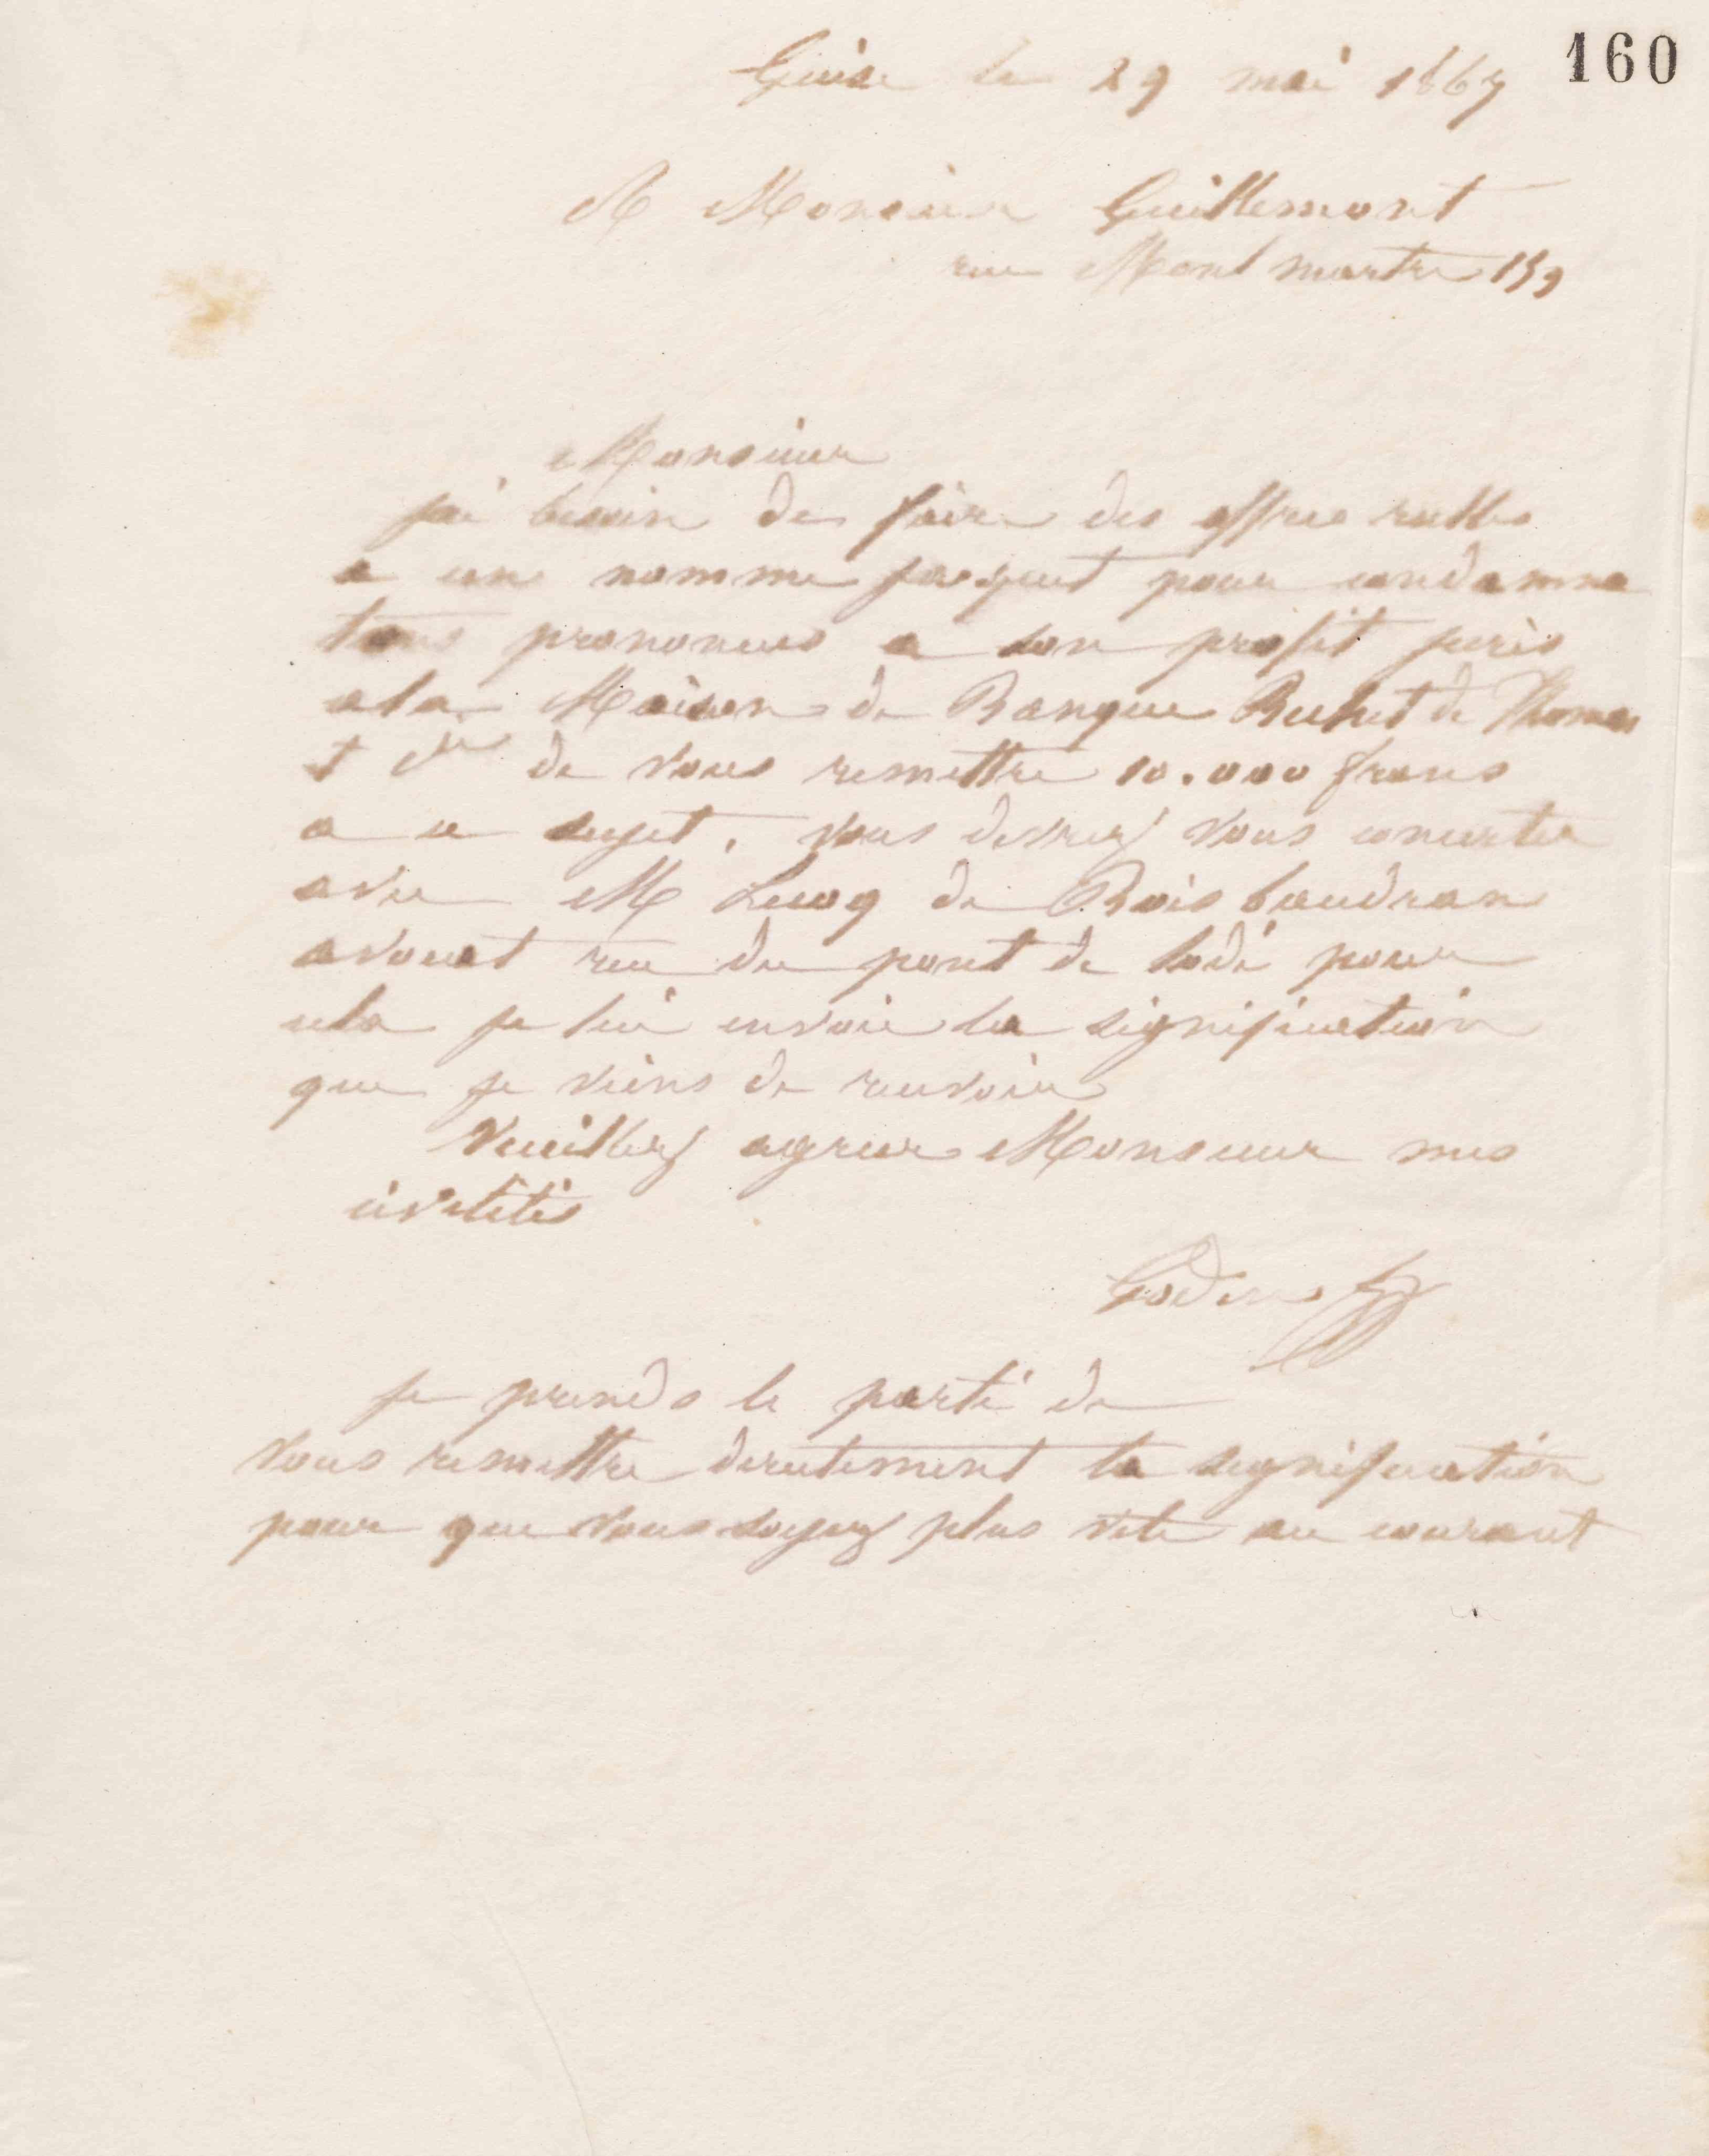 160
Guise le 29 mai 1867
A Monsieur Guillemont
rue Montmartre 159
Monsieur
j'ai besoin de faire des offres reelles
a un nomme Jacquet pour condamna
tions prononcees a son profit j'ecris
a la Maison de Banque Bechet de Thomas
et Cie de vous remettre 10.000 francs
a ce sujet. vous devrez vous concerter
avec M Lecoq de Boisbaudran
avocat rue du pont de lodi pour
cela je lui envoie la signification
que je viens de recevoir
Veuillez agreer Monsieur mes
civilités
Godin
je prends le parti de
vous remettre directement la signification
pour que vous soyez plus vite au courant